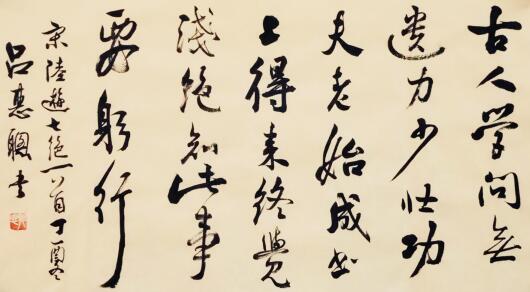 古人学问无
遗力少壮功
夫老始成
上得来终觉
浅绝知此事
要躬行
宋陸遊七绝一首丁酉冬
吕惠聪书